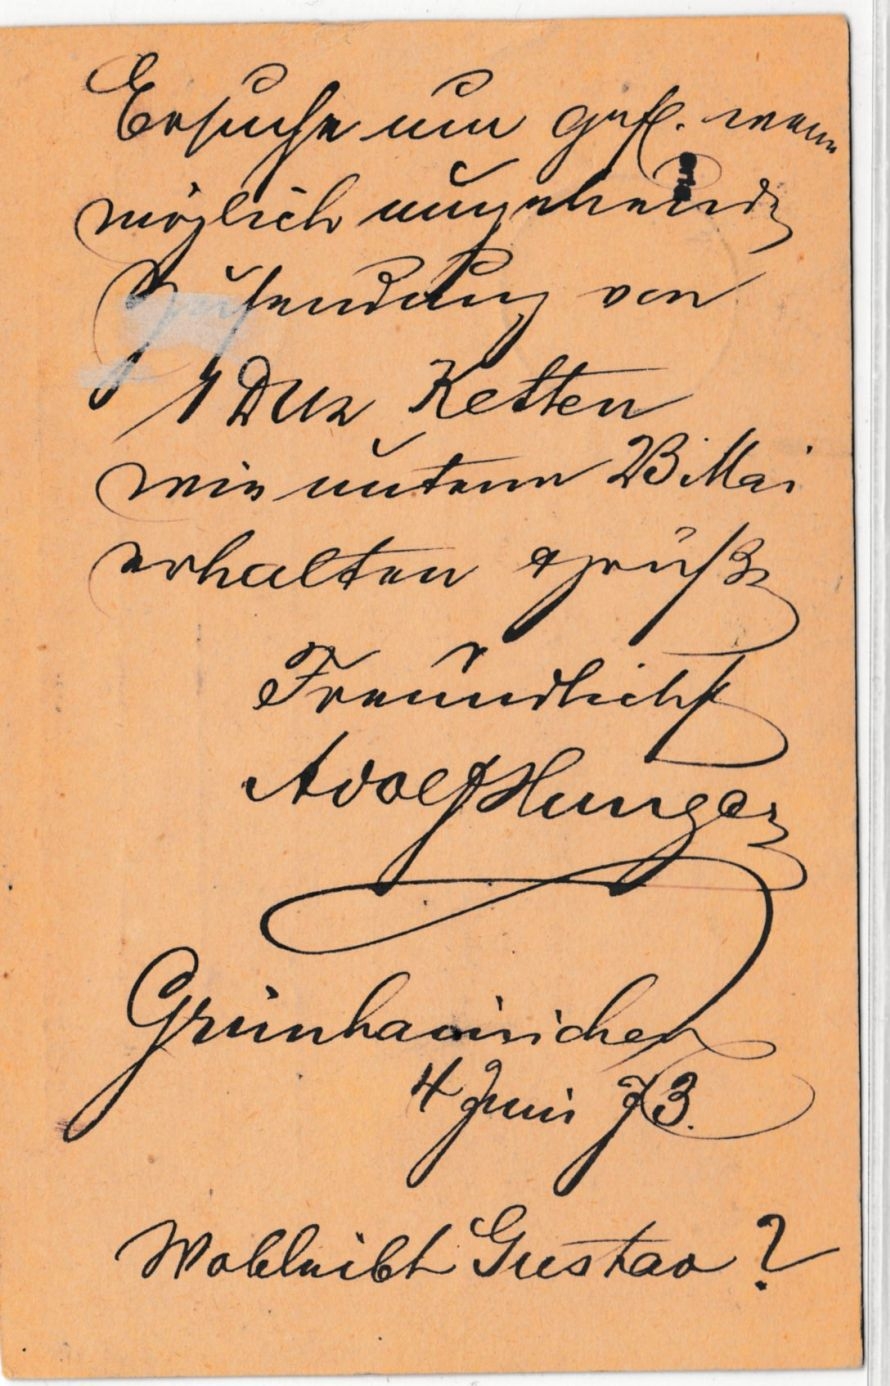 Ersuche um gefl. wenn
möglich umgehende
Zusendung von
1 Dtz Ketten
wie unterm 23 Mai
erhalten & grüße
Freundlichst
Adolf Hunger
Grünhainichen
4 Juni 73.
Wo bleibt Gustav?